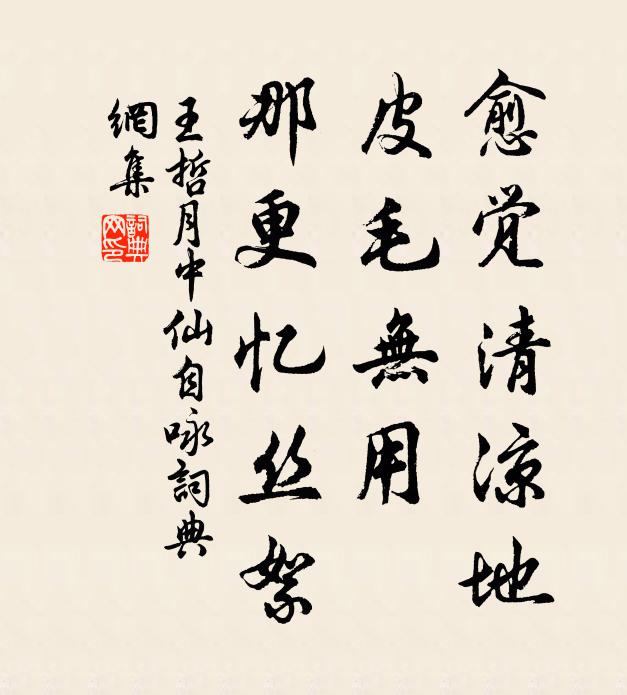 愈觉清涼地
皮毛無用
那更忆丝絮
王哲月中仙自咏詞典
網集
詞典
网印